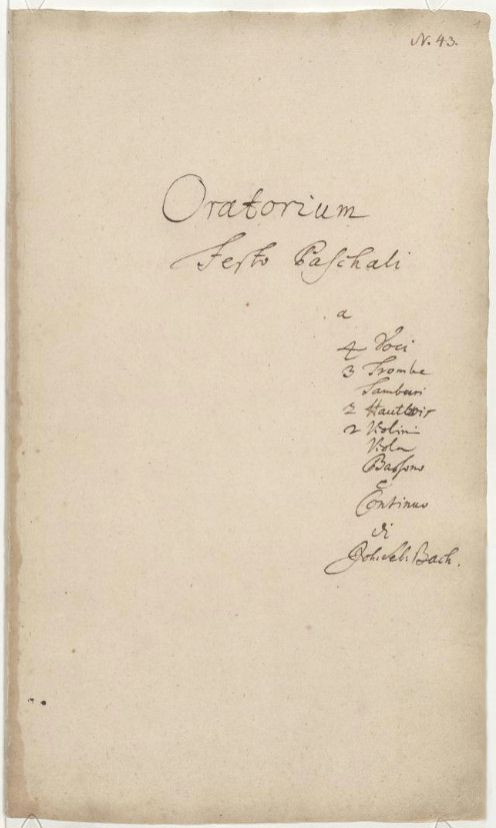 N. 43.
Oratorium
Festo Paschali
a
4 Voci
3 Trombe
Tamburi
2 Hautbois
2 Violini
Viola
Bassono
e
Continuo
di
Joh. Seb. Bach.